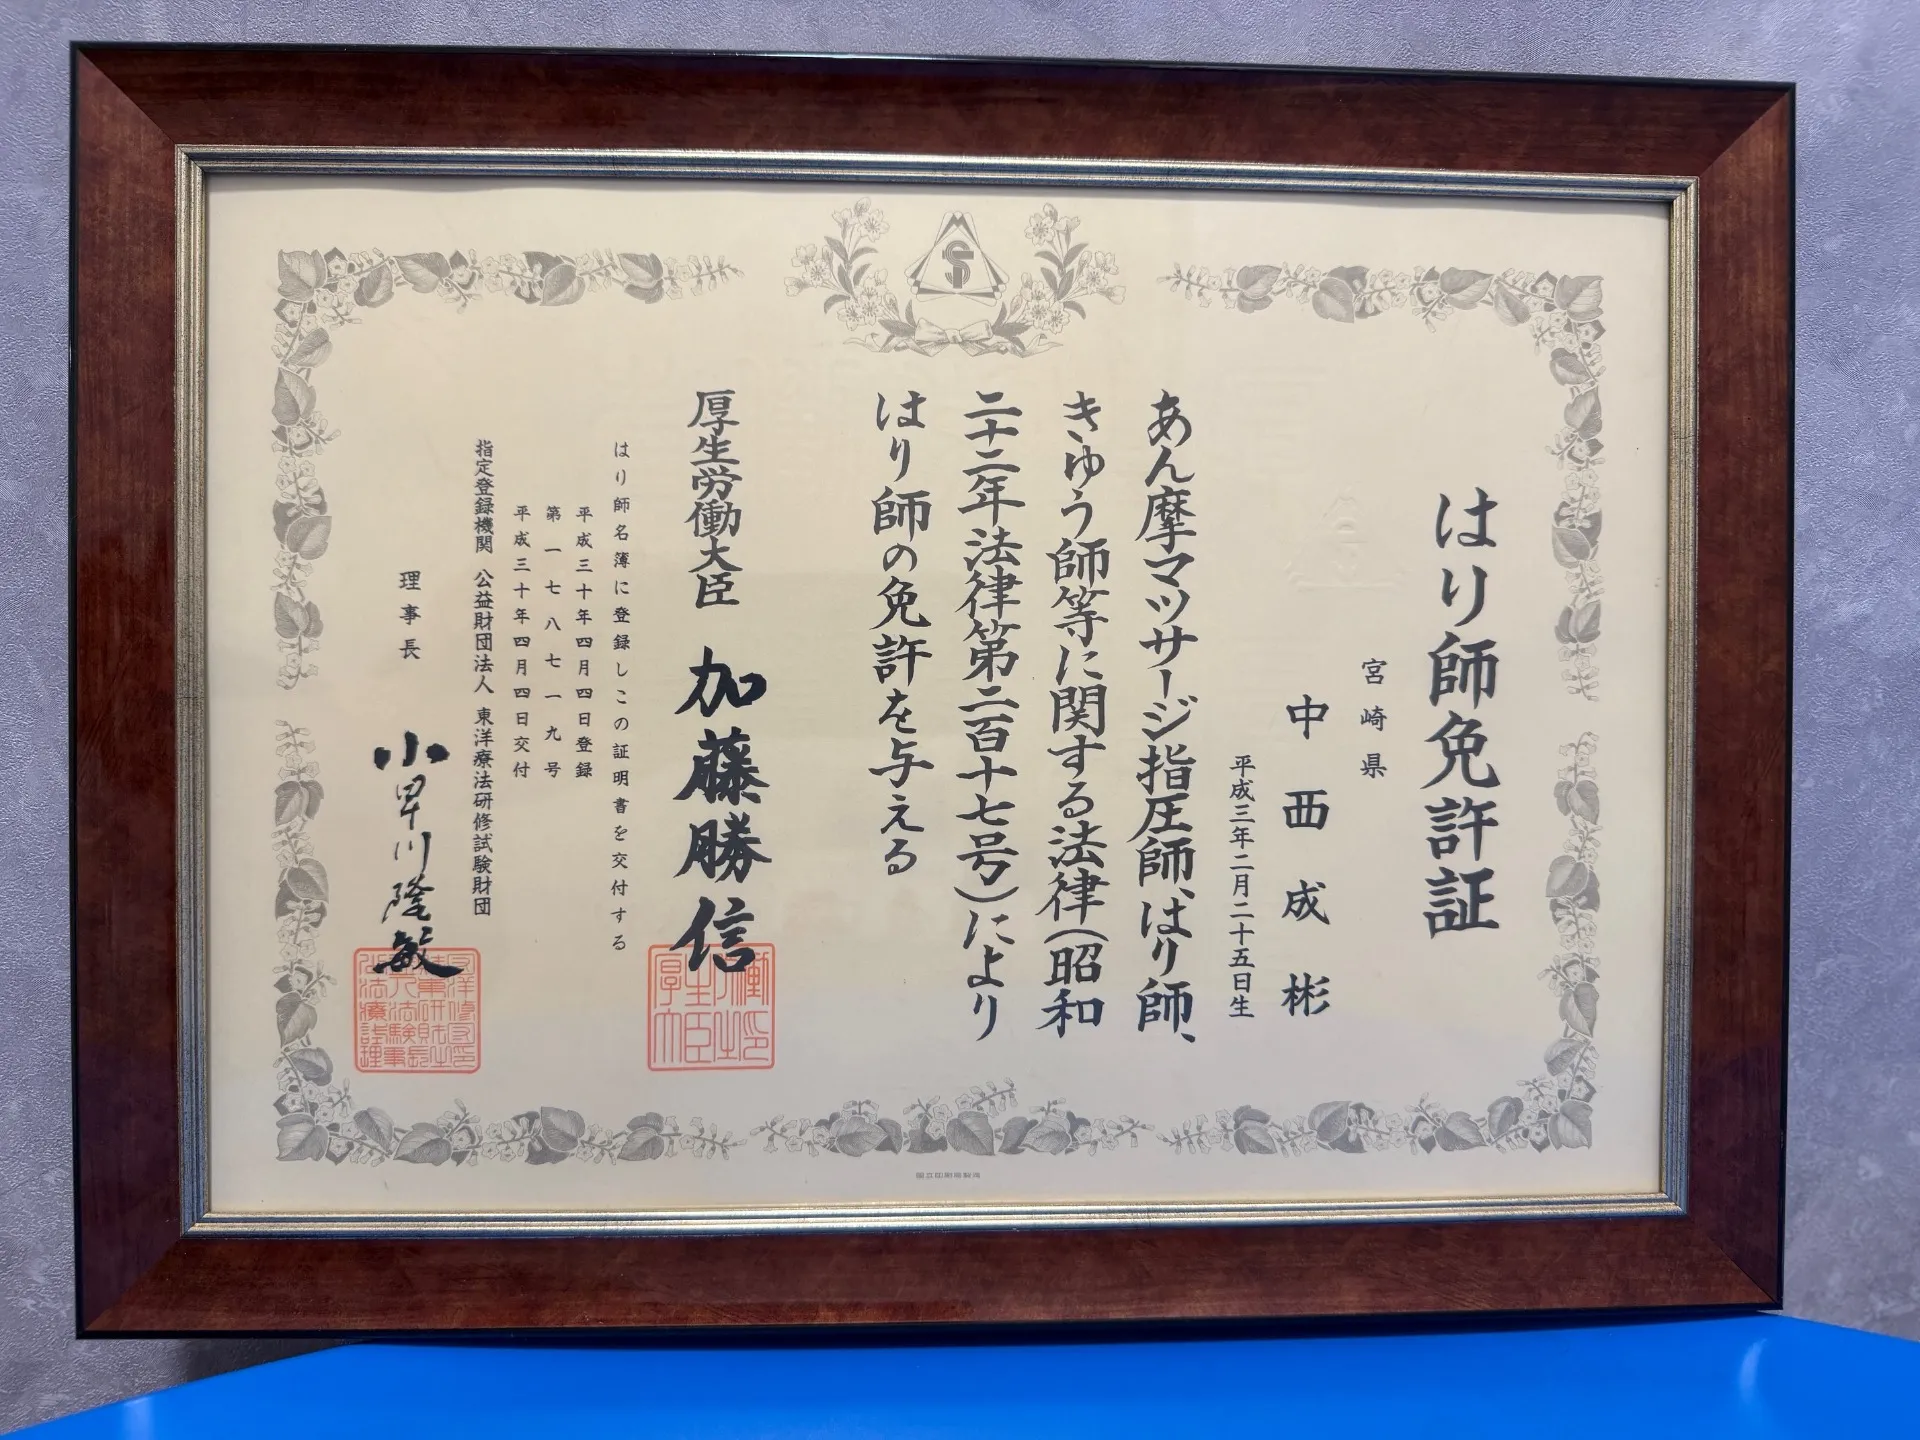 はり師免許証
宮崎県
中西成彬
平成三年二月二十五日生
あん摩マツサージ指圧師、はり師、
きゆう師等に関する法律(昭和
二十二年法律第二百十七号)により
はり師の免許を与える
厚生労働大臣 加藤勝信
はり師名簿に登録しこの証明書を交付する
平成三十年四月四日登録
第一七八七一九号
平成三十年四月四日交付
指定登録機関 公益財団法人 東洋療法研修試験財団
理事長 小早川隆敏
国立印刷局製造